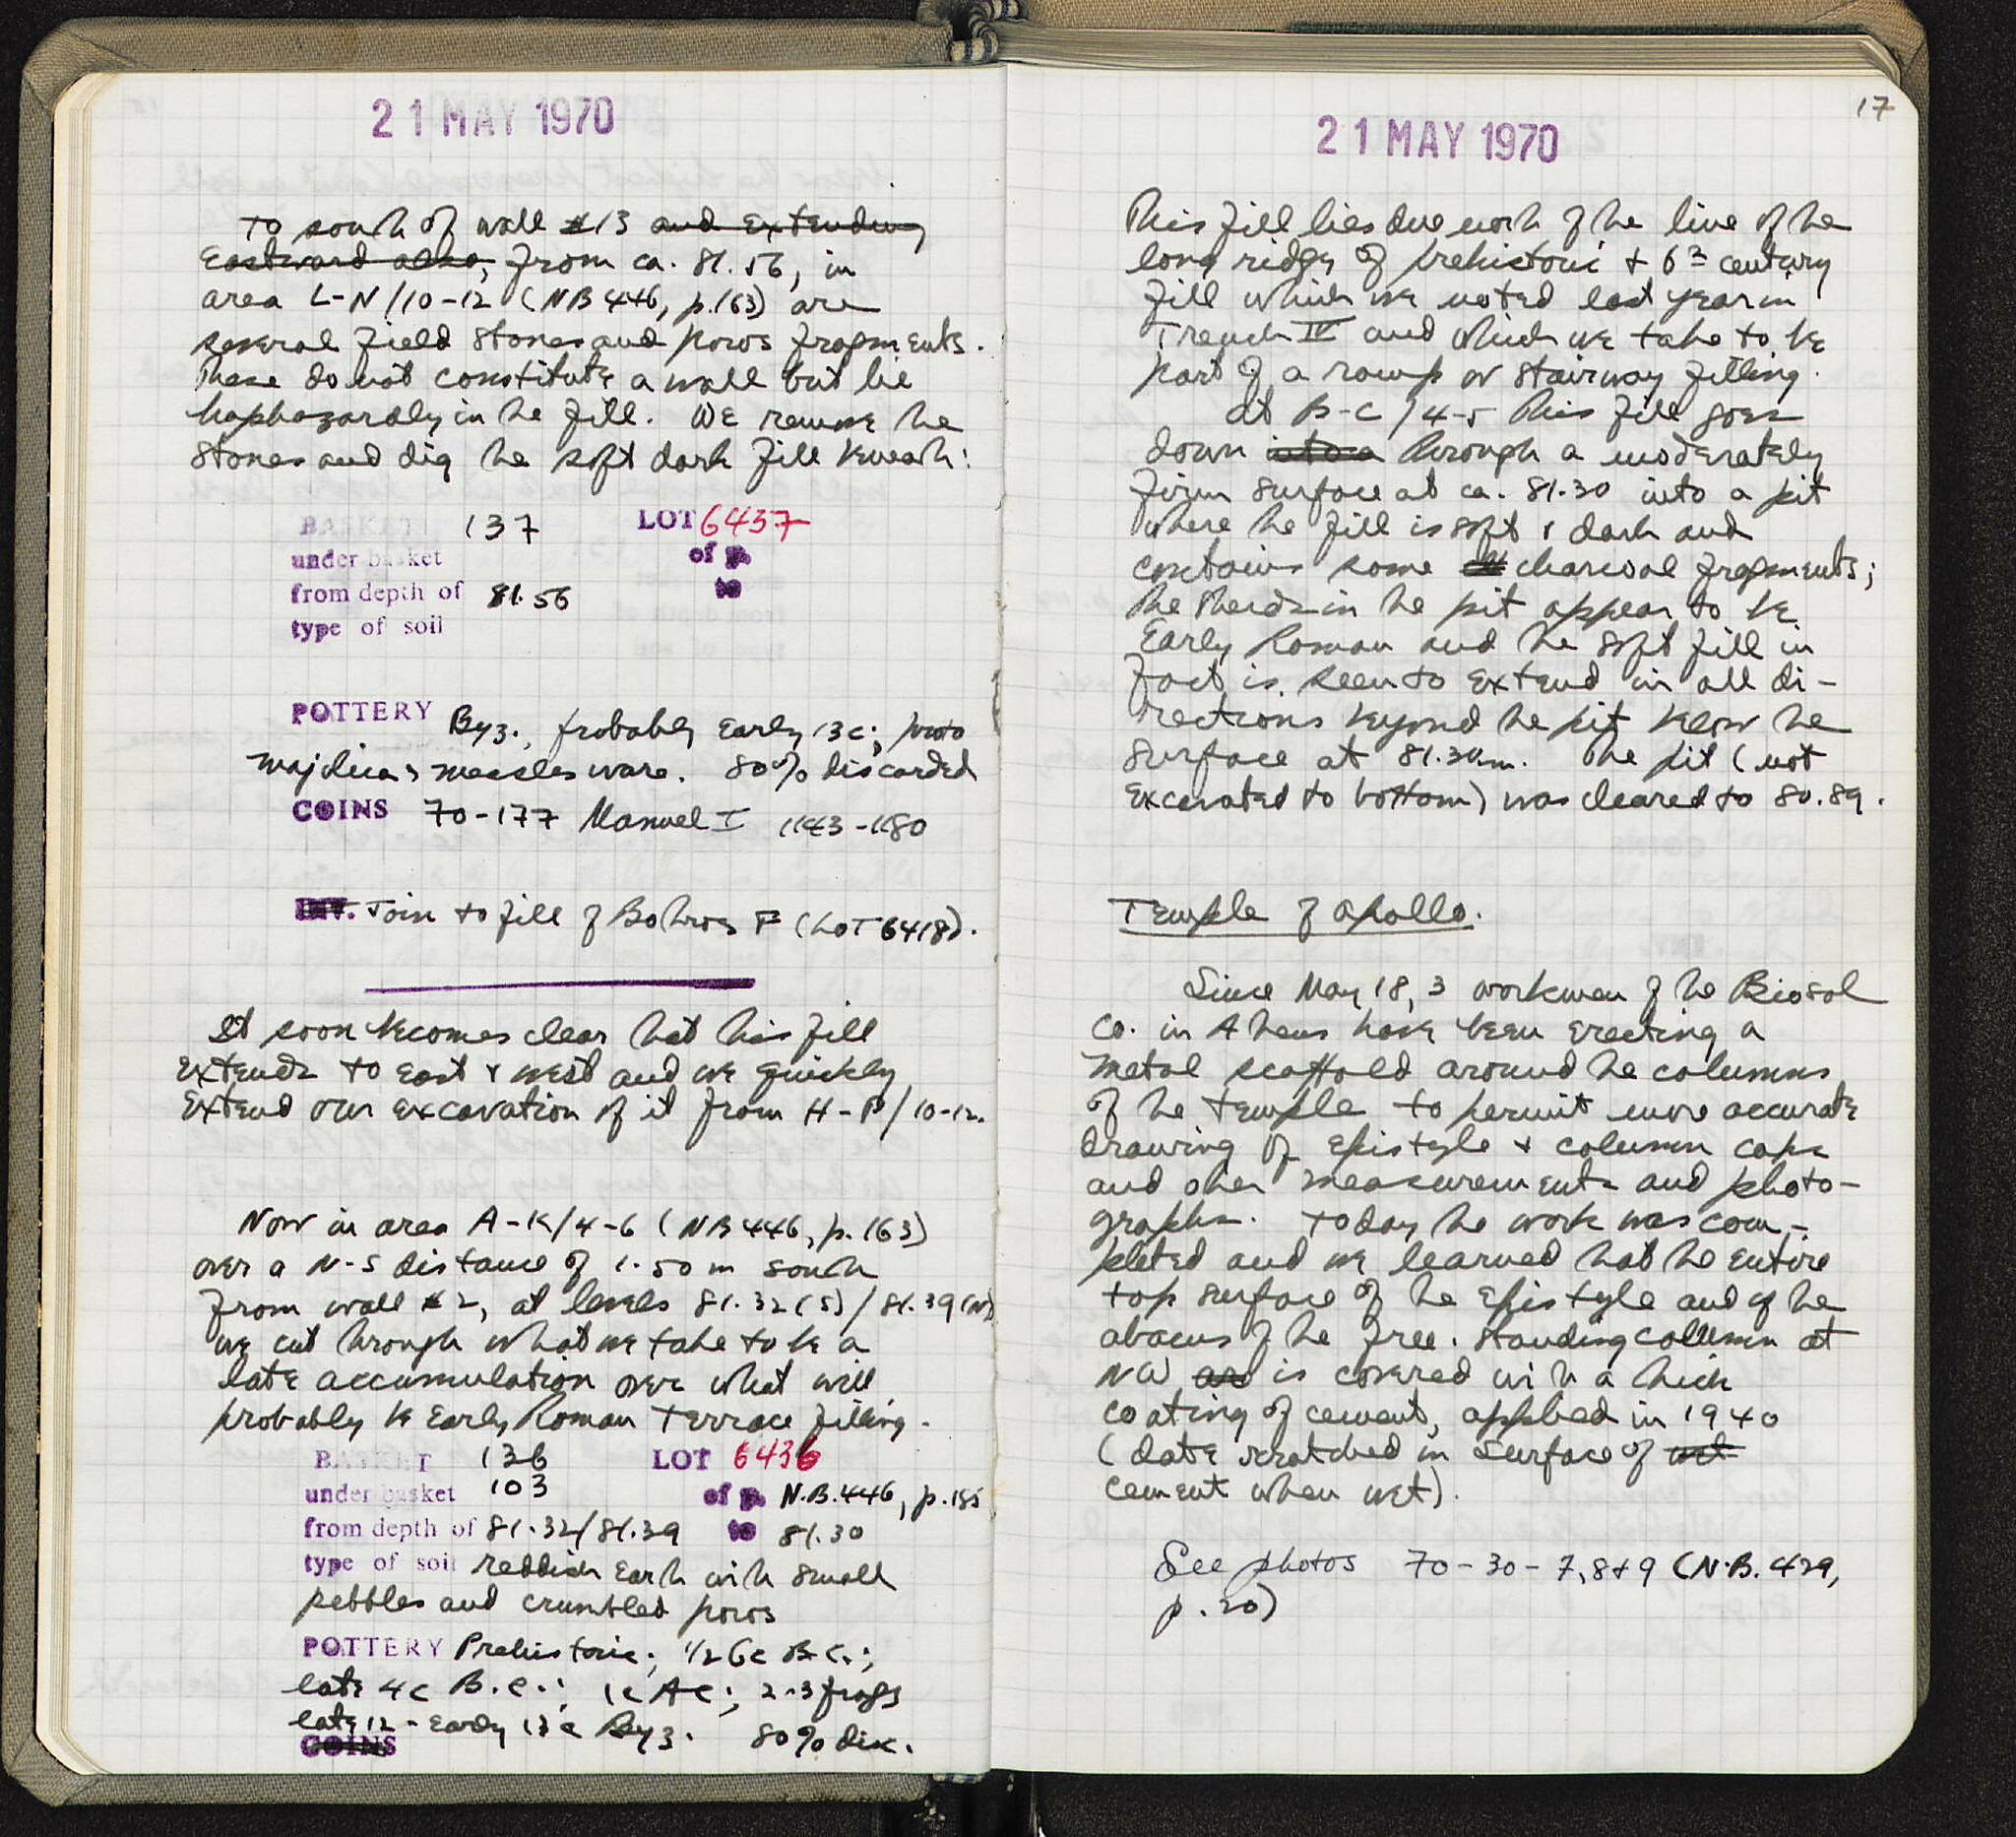 21 MAY 1970
To south of wall #13 and extending
Eastward also, from ca. 81.56, in
area L-N/10-12 (NB 446, p.163) are
several field stones and poros fragments.
These do not constitute a wall but lie
haphazardly in the fill. We remove the
stones and dig the soft dark fill beneath:
BASKET 137 LOT 6437
under basket of p.
from depth of 81.56 to
type of soil
POTTERY Byz., probably early 13c; proto
majolica & measles ware. 80% discarded
COINS 70-177 Manuel I 1143-1180
INV. Join to fill of Bothros F (LOT 6418).
It soon becomes clear that this fill
extends to east & west and we quickly
extend our excavation of it from H-P/10-12.
Now in area A-K/4-6 (NB 446, p.163)
over a N-S distance of 1.50 m south
from wall #2, at levels 81.32(S)/81.39(N)
we cut through what we take to be a
late accumulation over what will
probably be Early Roman Terrace filling.
BASKET 136 LOT 6436
under basket 103 of p. N.B.446, p.185
from depth of 81.32/81.39 to 81.30
type of soil reddish earth with small
pebbles and crumbled poros
POTTERY Prehistoric; 1/2 6c B.C.;
late 4c B.C.; 1c AC; 2-3 frags
late 12 - early 13 c Byz. 80% dis.
COINS
17
21 MAY 1970
This fill lies due north of the line of the
long ridge of prehistoric + 6th century
fill which we noted last year in
Trench IV and which we take to be
part of a ramp or stairway filling.
At B-C/4-5 this fill goes
down into a through a moderately
firm surface at ca. 81.30 into a pit
where the fill is soft & dark and
contains some charcoal fragments;
the sherds in the pit appear to be
Early Roman and the soft fill in
fact is seen to extend in all di-
rections beyond the pit below the
surface at 81.30m. The pit (not
excavated to bottom) was cleared to 80.89.
Temple of Apollo.
Since May 18, 3 workmen of the Biosol
Co. in Athens have been erecting a
metal scaffold around the columns
of the temple to permit more accurate
drawing of epistyle + column caps
and other measurements and photo-
graphs. Today the work was com-
pleted and we learned that the entire
top surface of the epistyle and of the
abacus of the free-standing column at
NW is covered with a thick
coating of cement, applied in 1940
(date scratched in surface of wet
cement when wet).
See photos 70-30-7,8+9 (N.B. 429,
p.20)